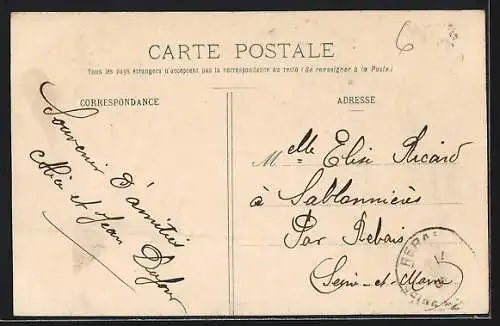 CARTE POSTALE
Tous les pays étrangers n'acceptent pas la correspondance au recto (Se renseigner à la Poste)
CORRESPONDANCE
ADRESSE
Souvenir d'amitié
et Jean Dufour
Melle Elise Ricard
à Sablonnières
Par Rebais
Seine-et-Marne
6